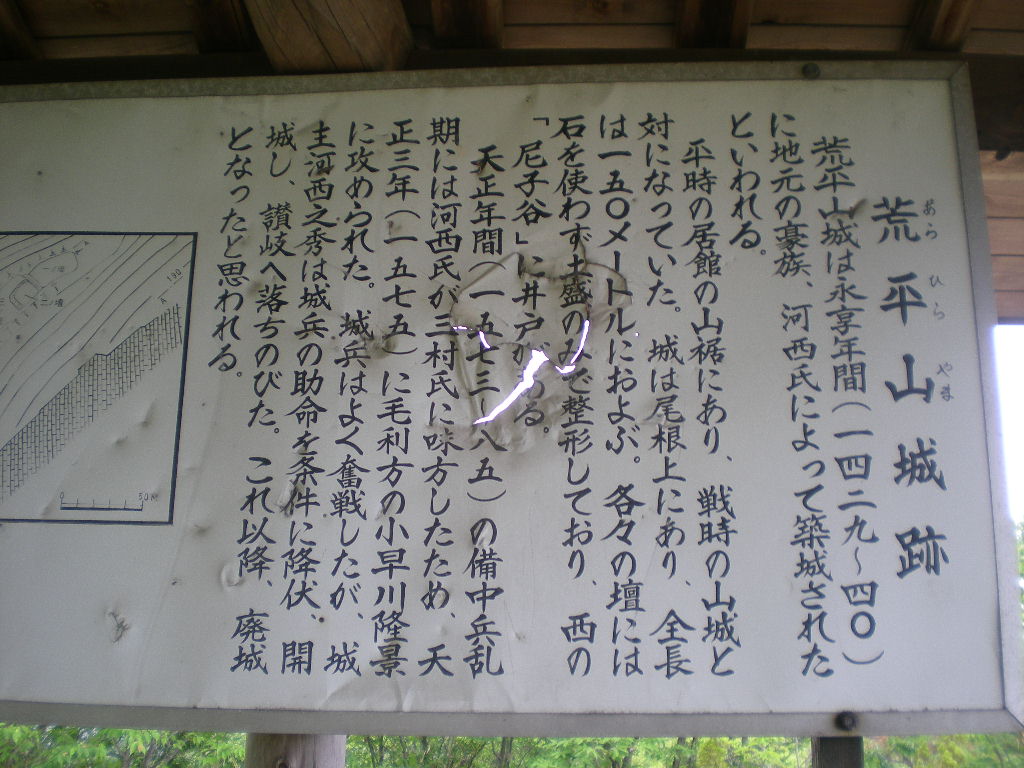 荒平山城跡
あら ひら やま
荒平山城は永享年間(一四二九～四〇)
に地元の豪族、河西氏によって築城された
といわれる。
平時の居館の山裾にあり、戦時の山城と
対になっていた。城は尾根上にあり、全長
は一五〇メートルにおよぶ。各々の壇には
石を使わず土盛のみで整形しており、西の
「尼子谷」に井戸がある。
天正年間(一五七三～八五)の備中兵乱
期には河西氏が三村氏に味方したため、天
正三年(一五七五)に毛利方の小早川隆景
に攻められた。城兵はよく奮戦したが、城
主河西之秀は城兵の助命を条件に降伏、開
城し、讃岐へ落ちのびた。これ以降、廃城
となったと思われる。
190
A
一ノ壇
二ノ壇
0 50M